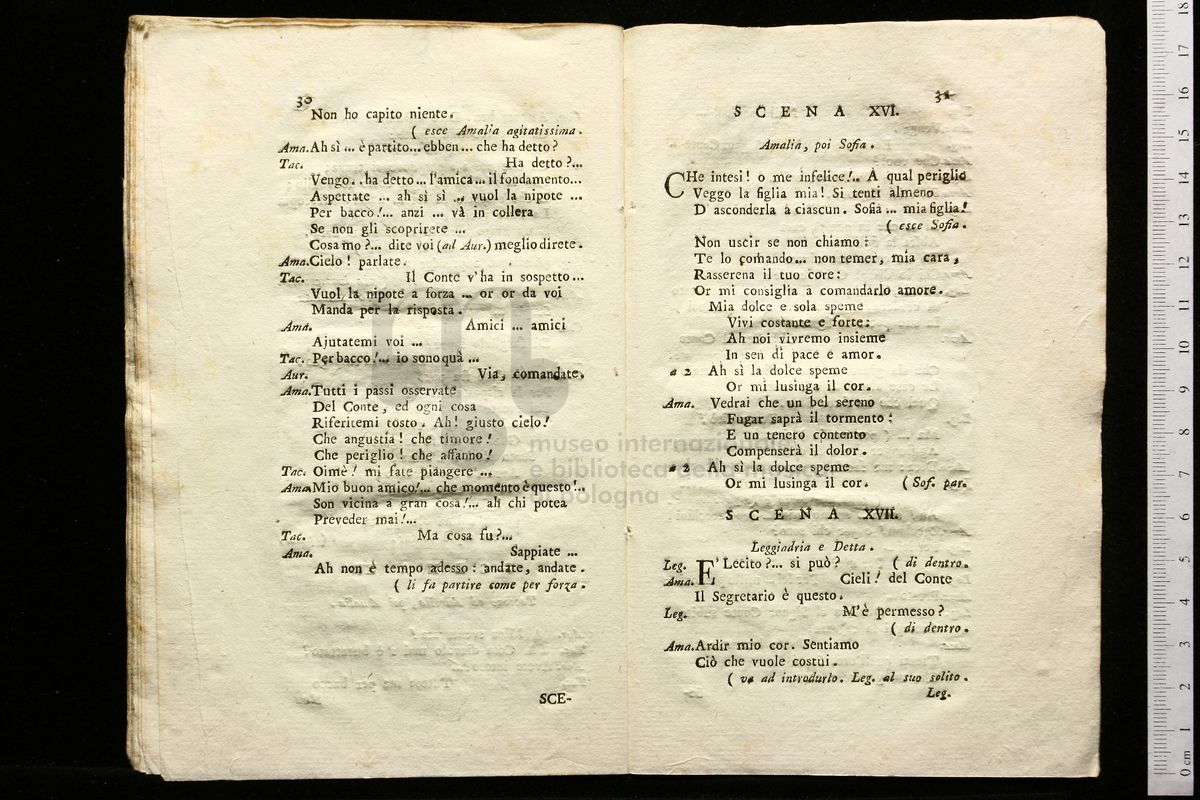 30
Non ho capito niente.
( esce Amalia agitatissima.
Ama. Ah sì ... è partito... ebben ... che ha detto?
Tac. Ha detto?...
Vengo..ha detto... l'amica... il fondamento...
Aspettate ... ah sì sì ... vuol la nipote ...
Per bacco!... anzi ... và in collera
Se non gli scoprirete ...
Cosa mo?... dite voi (ad Aur.) meglio direte.
Ama. Cielo! parlate.
Tac. Il Conte v'ha in sospetto...
Vuol la nipote a forza ... or or da voi
Manda per la risposta.
Ama. Amici ... amici
Ajutatemi voi ...
Tac. Per bacco!... io sono quà ...
Aur. Via, comandate.
Ama. Tutti i passi osservate
Del Conte, ed ogni cosa
Riferitemi tosto. Ah! giusto cielo!
Che angustia! che timore!
Che periglio! che affanno!
Tac. Oimè! mi fate piangere ...
Ama. Mio buon amico!... che momento è questo!..
Son vicina a gran cosa!... ah chi potea
Preveder mai!...
Tac. Ma cosa fu?...
Ama. Sappiate ...
Ah non è tempo adesso: andate, andate.
( li fa partire come per forza.
SCE-
31
SCENA XVI.
Amalia, poi Sofia.
CHe intesi! o me infelice!.. A qual periglio
Veggo la figlia mia! Si tenti almeno
D' asconderla a ciascun. Sofia ... mia figlia!
( esce Sofia.
Non uscir se non chiamo:
Te lo comando... non temer, mia cara,
Rasserena il tuo core:
Or mi consiglia a comandarlo amore.
Mia dolce e sola speme
Vivi costante e forte:
Ah noi vivremo insieme
In sen di pace e amor.
a 2 Ah sì la dolce speme
Or mi lusinga il cor.
Ama. Vedrai che un bel sereno
Fugar saprà il tormento:
E un tenero contento
Compenserà il dolor.
a 2 Ah sì la dolce speme
Or mi lusinga il cor. ( Sof. par.
SCENA XVII.
Leggiadria e Detta.
Leg. E' Lecito?... si può? ( di dentro.
Ama. Cieli! del Conte
Il Segretario è questo.
Leg. M'è permesso?
( di dentro.
Ama. Ardir mio cor. Sentiamo
Ciò che vuole costui.
( va ad introdurlo. Leg. al suo solito.
Leg.